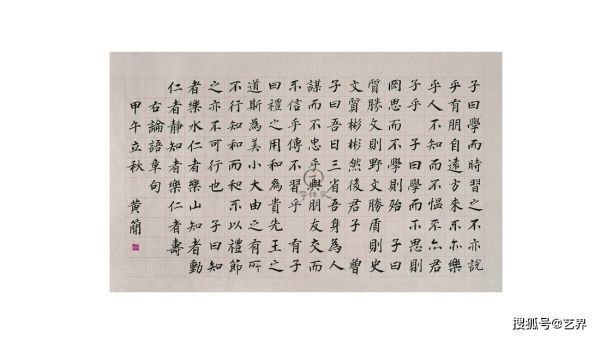 子曰學而時習之不亦說
乎有朋自遠方來不亦樂
乎人不知而不慍不亦君
子乎 子曰學而不思則
罔思而不學則殆 子曰
質勝文則野文勝質則史
文質彬彬然後君子 曾
子曰吾日三省吾身為人
謀而不忠乎與朋友交而
不信乎傳不習乎 有子
曰禮之用和為貴先王之
道斯為美小大由之有所
不行知和而和不以禮節
之亦不可行也 子曰知
者樂水仁者樂山知者動
仁者靜知者樂仁者壽
右論語章句
甲午立秋 黃簡
搜狐号@艺界